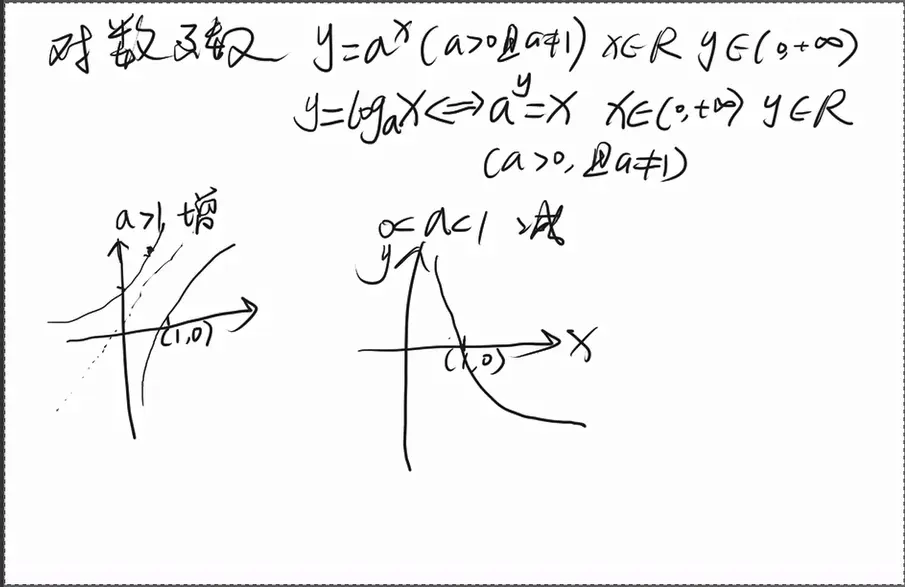 对数函数 y=aˣ(a>0且a≠1) x∈R y∈(0,+∞)
y=logₐx⟺aʸ=x x∈(0,+∞) y∈R
(a>0,且a≠1)
a>1,增
0<a<1 减
y
(1,0)
(1,0)
x